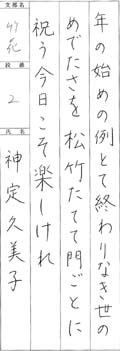 年の始めの例とて終わりなき世の
めでたさを松竹たてて門ごとに
祝う今日こそ楽しけれ
支部名
竹花
段級
2
氏名
神定久美子